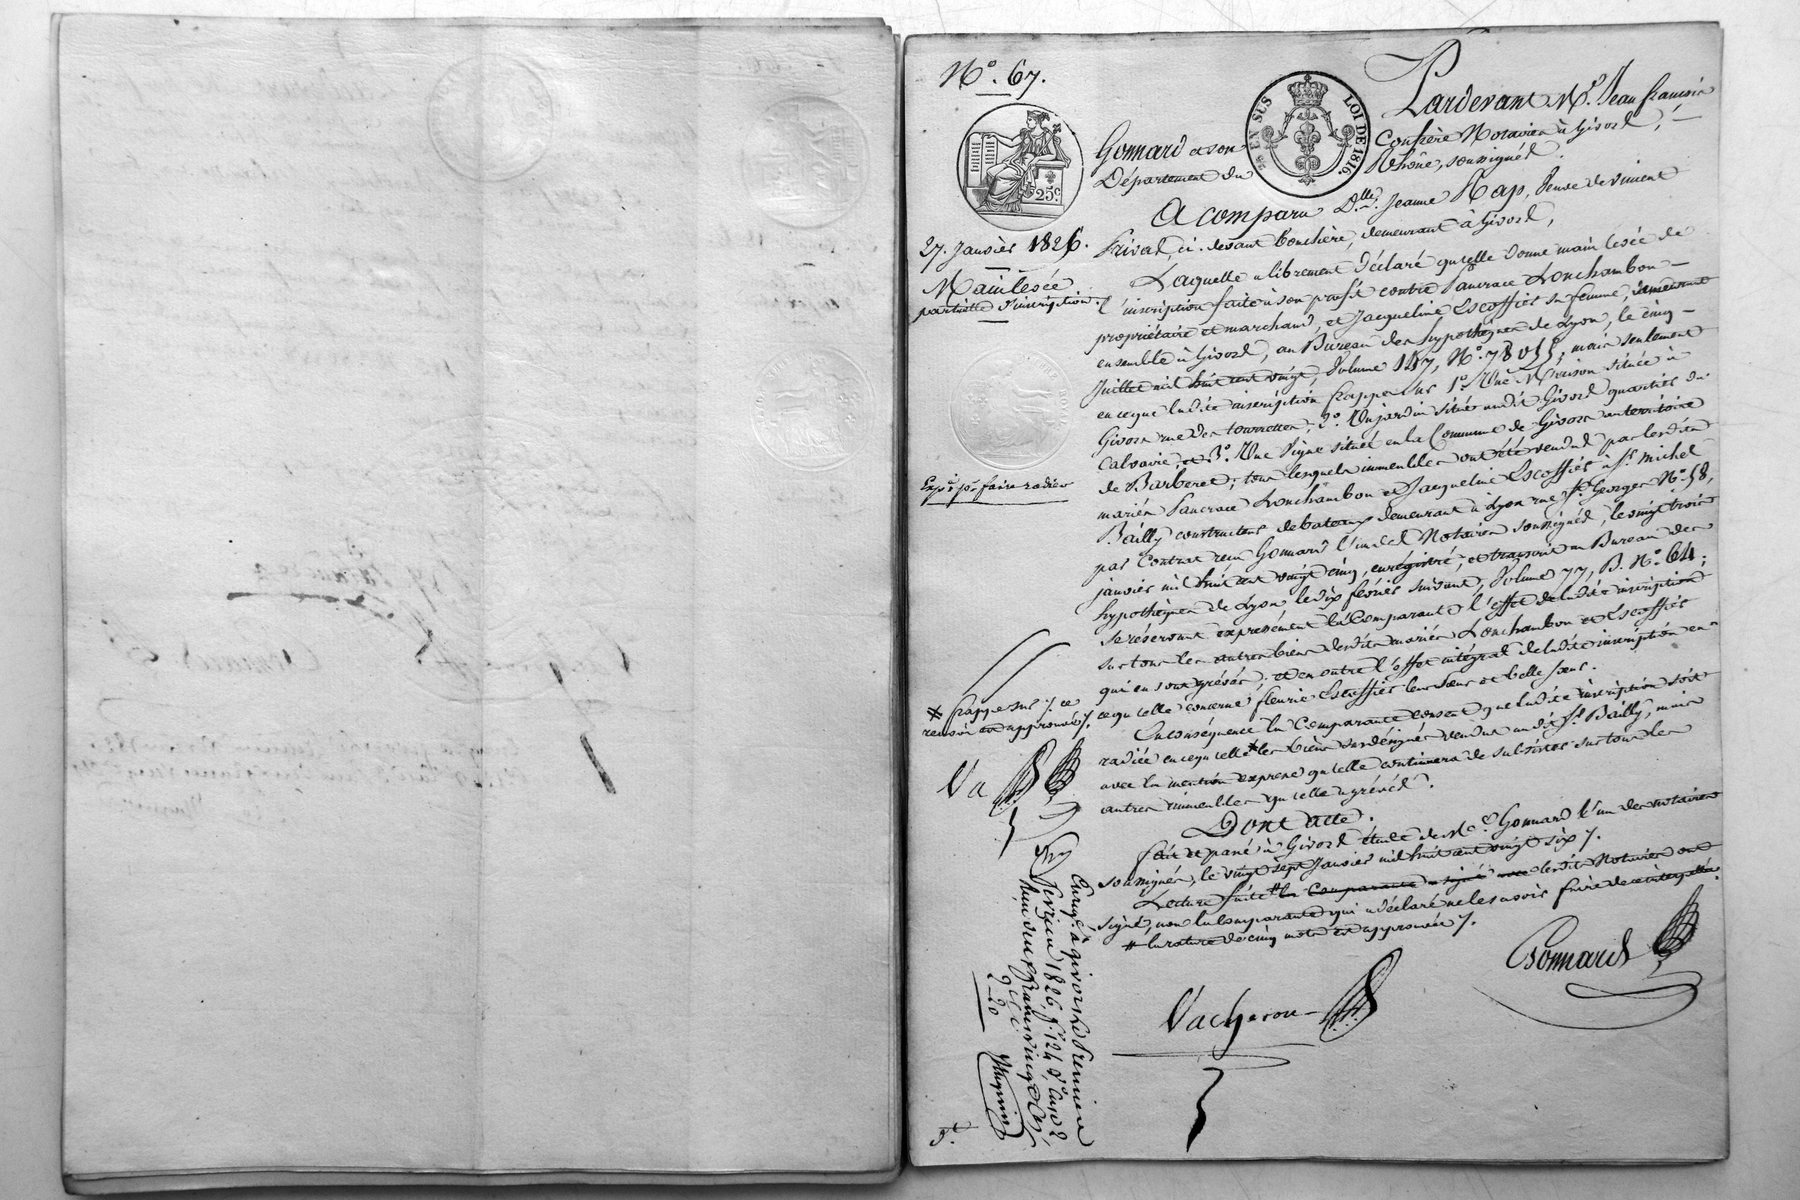 N.º 67.
25 EN SUS LOI DE 1816.
25.c
27. Janvier 1826.
Mainlevée
partielle d'inscription.
Exp.é p.r faire radier
Pardevant M.e Jean francois
Gonnard et son Confrère Notaires à Givors,
Département du Rhône, soussignés.
A comparu D.lle Jeanne Rap, Veuve de Vincent
Frivat, ci-devant bouchère, demeurant à Givors,
Laquelle a librement déclaré qu'elle donne main levée de
l'inscription faite à son profit contre Pancrace Lonchambon
propriétaire et marchand, et Jacqueline Escoffier sa femme, demeurant
ensemble à Givors, au Bureau des hypothèques de Lyon, le cinq
Juillet mil huit cent vingt, Volume 147, N.º mais seulement
en ce que ladite inscription frappe sur 1.º Une Maison située à
Givors rue des tourrettes; 2.º Un jardin situé audit Givors quartier du
Calvaire, et 3.º Une Vigne située en la Commune de Givors au territoire
de Barberet; tous lesquels immeubles ont été vendus par lesdits
mariés Pancrace Lonchambon et Jacqueline Escoffier à S.r Michel
Bailly constructeur de bateaux demeurant à Lyon rue S.t Georges N.º 58,
par Contrat reçu Gonnard l'un des Notaires soussignés, le vingt trois
janvier mil huit cent vingt cinq, enregistré, et transcrit au Bureau des
hypothèques de Lyon, le dix février suivant, Volume 77, B. N.º 64;
se réservant expressément la Comparante l'effet de ladite inscription
sur tous les autres biens desdits mariés Lonchambon et Escoffier
qui en sont grévés; et en outre l'effet intégral de ladite inscription en
ce qu'elle concerne fleurie Escoffier leur sœur et belle sœur.
En conséquence la Comparante consent que ladite inscription soit
radiée en ce qu'elle # les biens susdésignés vendus audit S.r Bailly, mais
avec la mention expresse qu'elle continuera de subsister sur tous les
autres immeubles qu'elle a grévés.
# frappe sur /. ce
renvoi est approuvé /.
Va G
Dont acte.
fait et passé à Givors étude de M.e Gonnard l'un des notaires
soussignés, le vingt sept Janvier mil huit cent vingt six /.
Lecture faite # la Comparante a signé avec lesdits Notaires ont
signé, non la comparante qui a déclaré ne le savoir faire de ce interpellée.
# la rature de cinq mots est approuvée /.
Gonnard
Vacheron
Enreg.é à givors le Premier
fevrier 1826, f.o 124 V.o Case 2
Reçu deux francs vingt C.es
2–20